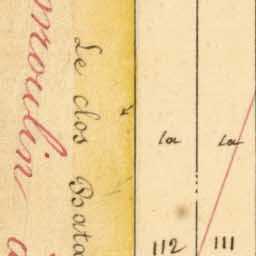 moulin
Le clos Bata
la la
112 111